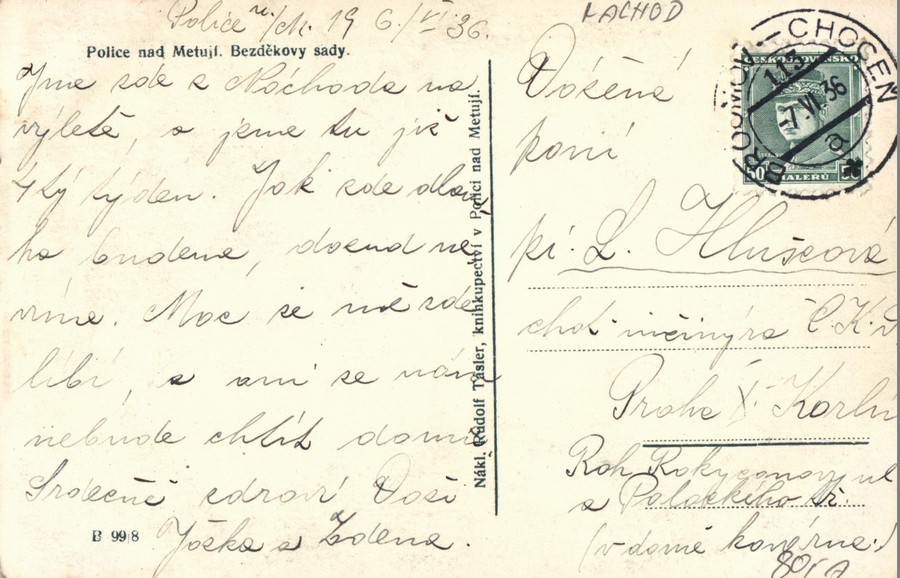 Police n/M. dne 6/VI 36.
NACHOD
Police nad Metují. Bezděkovy sady.
Jsme zde z Náchoda na
výletě, a jsme tu již
4tý týden. Jak zde dlou
ho budeme, dosud ne
víme. Moc se mě zde
líbí, a ani se nám
nebude chtít domů
Srdečně zdraví Vaši
Jóžka a Zdena.
B 998
Nákl. Rudolf Tásler, knihkupectví v Polici nad Metují.
BROUMOV – CHOCEŇ
-7.VI.36
ČESKOSLOVENSKO
50 HALÉŘŮ 50
Vážená
paní
pí. L. Hlušcová
choť inženýra Č.K.D
Praha X. Karlín
Roh Rokycanovy ul
a Palackého tř.
(v domě kavárna.)